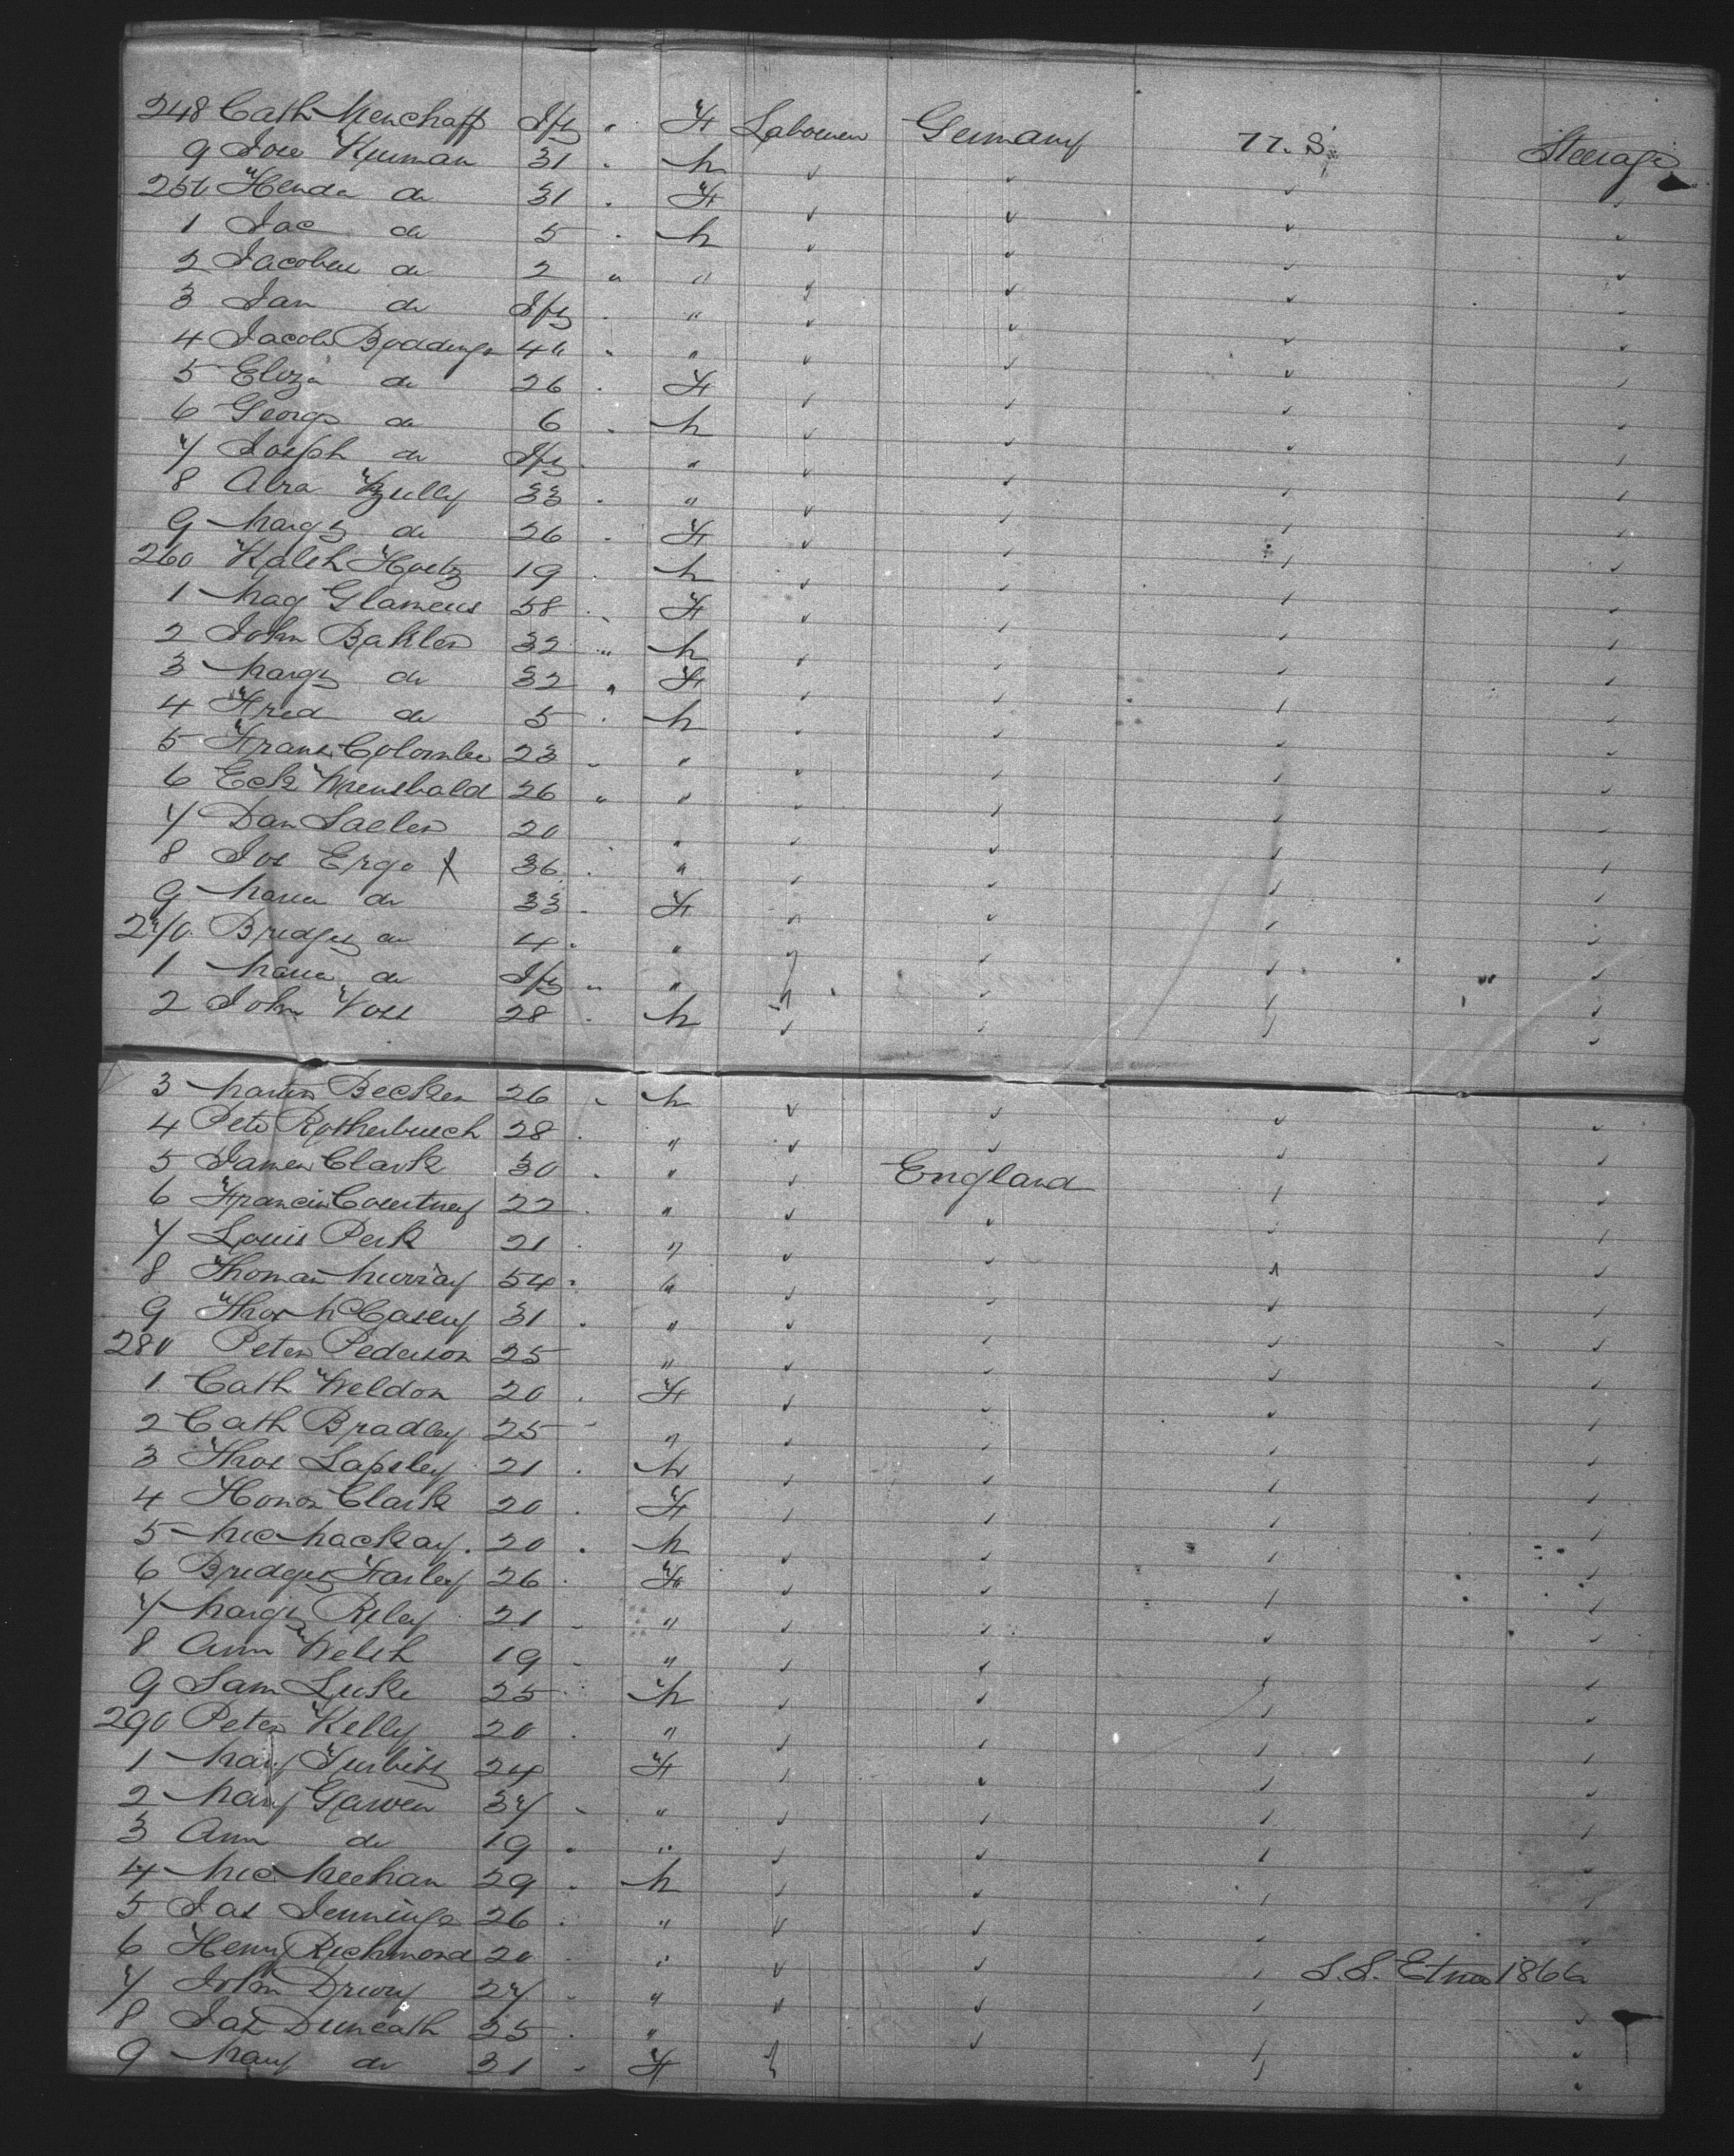 248 Cath Menchaff Inft " F Labourer Germany U.S. Steerage
9 Jose Kuman 31 " M
250 Henda do 31 " F
1 Jac do 5 " M
2 Jacobus do 2 " "
3 Jan do Inft " "
4 Jacob Boddings 40 " "
5 Eliza do 26 " F
6 George do 6 " M
7 Joseph do Inft " "
8 Abra Zully 33 " "
9 Margt do 26 " F
260 19 " M
1 Mag Glameus 58 " F
2 John Bahler 32 " M
3 Margt do 32 " F
4 Fred do 5 " M
5 Frans Colombe 23 " "
6 Eck 26 " "
7 Dan Saeler 20 " "
8 Jos Ergo X 36 " "
9 Maria do 33 " F
270 Bridget do 4 " "
1 Maria do Inft " "
2 John Voss 28 " M
3 Martin Becker 26 " M
4 Peter Rotherbusch 28 " "
5 James Clark 30 " " England
6 Francis Courtney 22 " "
7 Louis Perk 21 " "
8 Thomas Murray 54 " "
9 Thos McCasery 31 " "
280 Peter Pederson 25 "
1 Cath Weldon 20 " F
2 Cath Bradley 25 " "
3 Thos Lapsley 21 " M
4 Honor Clark 20 " F
5 Mic Mackay 20 " M
6 Bridget Farley 26 " F
7 Margt Riley 21 " "
8 Ann Welsh 19 " "
9 Sam Luke 25 " M
290 Peter Kelly 20 " "
1 Mary Turbitt 24 F
2 Mary Garven 37 " "
3 Ann do 19 " "
4 Mic Meehan 29 " M
5 Jas Jennings 26 " "
6 Henry Richmond 20 " "
S.S. Etna 1866
7 John Drury 27 " "
8 Jas Duncath 25 " "
9 Mary do 31 " F